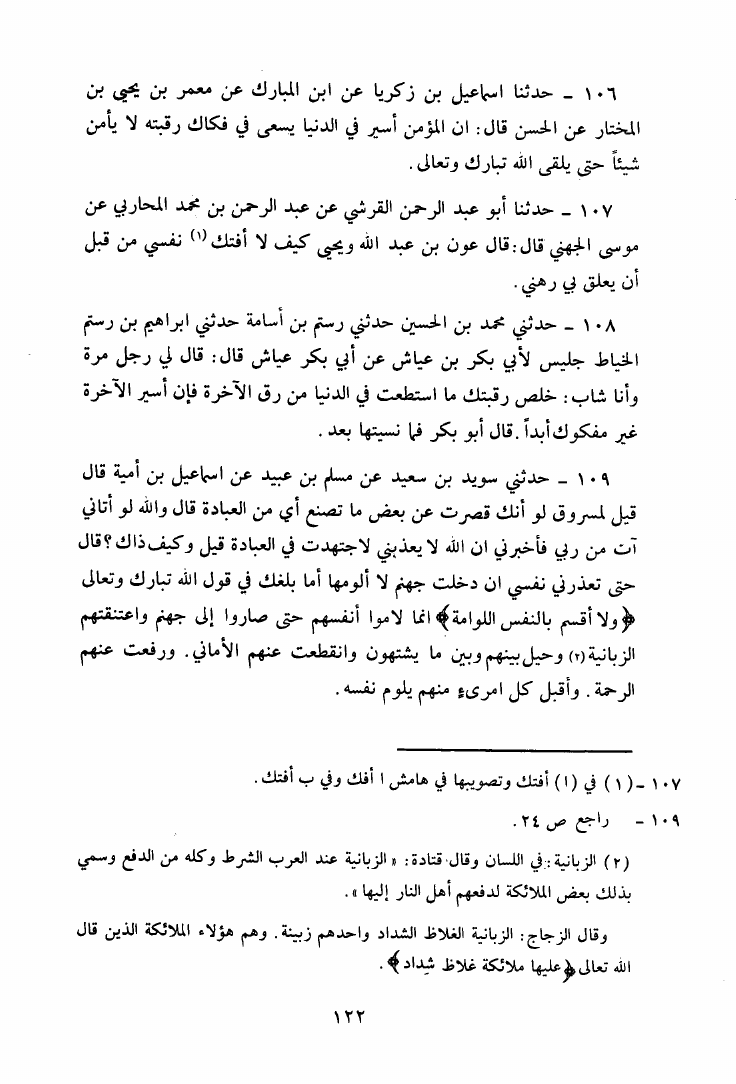 ١٠٦ - حدثنا اسماعيل بن زكريا عن ابن المبارك عن معمر بن يحيى بن
المختار عن الحسن قال: ان المؤمن أسير في الدنيا يسعى في فكاك رقبته لا يأمن
شيئاً حتى يلقى الله تبارك وتعالى.
١٠٧ - حدثنا أبو عبد الرحمن القرشي عن عبد الرحمن بن محمد المحاربي عن
موسى الجهني قال: قال عون بن عبد الله ويحيى كيف لا أفتك (١) نفسي من قبل
أن يعلق بي رهني.
١٠٨ - حدثني محمد بن الحسين حدثني رستم بن أسامة حدثني ابراهيم بن رستم
الخياط جليس لأبي بكر بن عياش عن أبي بكر عياش قال: قال لي رجل مرة
وأنا شاب: خلص رقبتك ما استطعت في الدنيا من رق الآخرة فإن أسير الآخرة
غير مفكوك أبداً. قال أبو بكر فما نسيتها بعد.
١٠٩ - حدثني سويد بن سعيد عن مسلم بن عبيد عن اسماعيل بن أمية قال
قيل لمسروق لو أنك قصرت عن بعض ما تصنع أي من العبادة قال والله لو أتاني
آت من ربي فأخبرني ان الله لا يعذبني لاجتهدت في العبادة قيل وكيف ذاك؟ قال
حتى تعذرني نفسي ان دخلت جهنم لا ألومها أما بلغك في قول الله تبارك وتعالى
﴿ولا أقسم بالنفس اللوامة﴾ انما لاموا أنفسهم حتى صاروا إلى جهنم واعتنقتهم
الزبانية (٢) وحيل بينهم وبين ما يشتهون وانقطعت عنهم الأماني. ورفعت عنهم
الرحمة. وأقبل كل امرىء منهم يلوم نفسه.
١٠٧ - (١) في (ا) أفتك وتصويبها في هامش ا أفك وفي ب أفتك.
١٠٩ - راجع ص ٢٤.
(٢) الزبانية: في اللسان وقال قتادة: «الزبانية عند العرب الشرط وكله من الدفع وسمي
بذلك بعض الملائكة لدفعهم أهل النار إليها».
وقال الزجاج: الزبانية الغلاظ الشداد واحدهم زبينة. وهم هؤلاء الملائكة الذين قال
الله تعالى ﴿عليها ملائكة غلاظ شداد﴾.
١٢٢